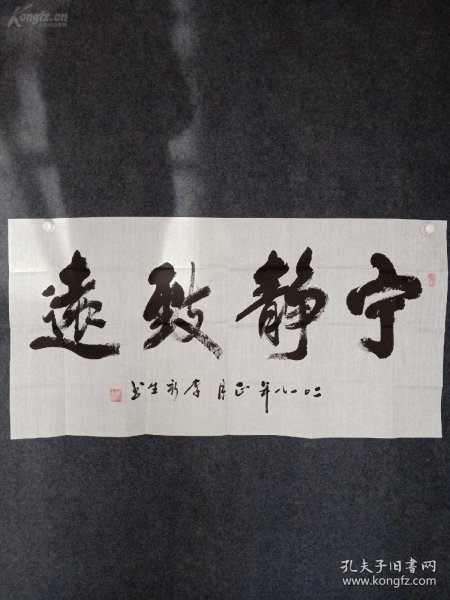 Kongfz.cn
宁静致遠
二〇一八年正月李新生书
孔夫子旧书网
www.kongfz.com